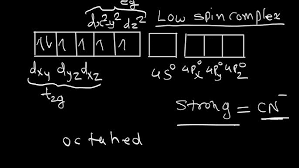 eg
dx²-y² dz² Low spin complex
↑↓ ↑ ↑ ↑ ↑
dxy dyz dxz 4s⁰ 4px⁰ 4py⁰ 4pz⁰
t2g
Strong = CN⁻
octahed